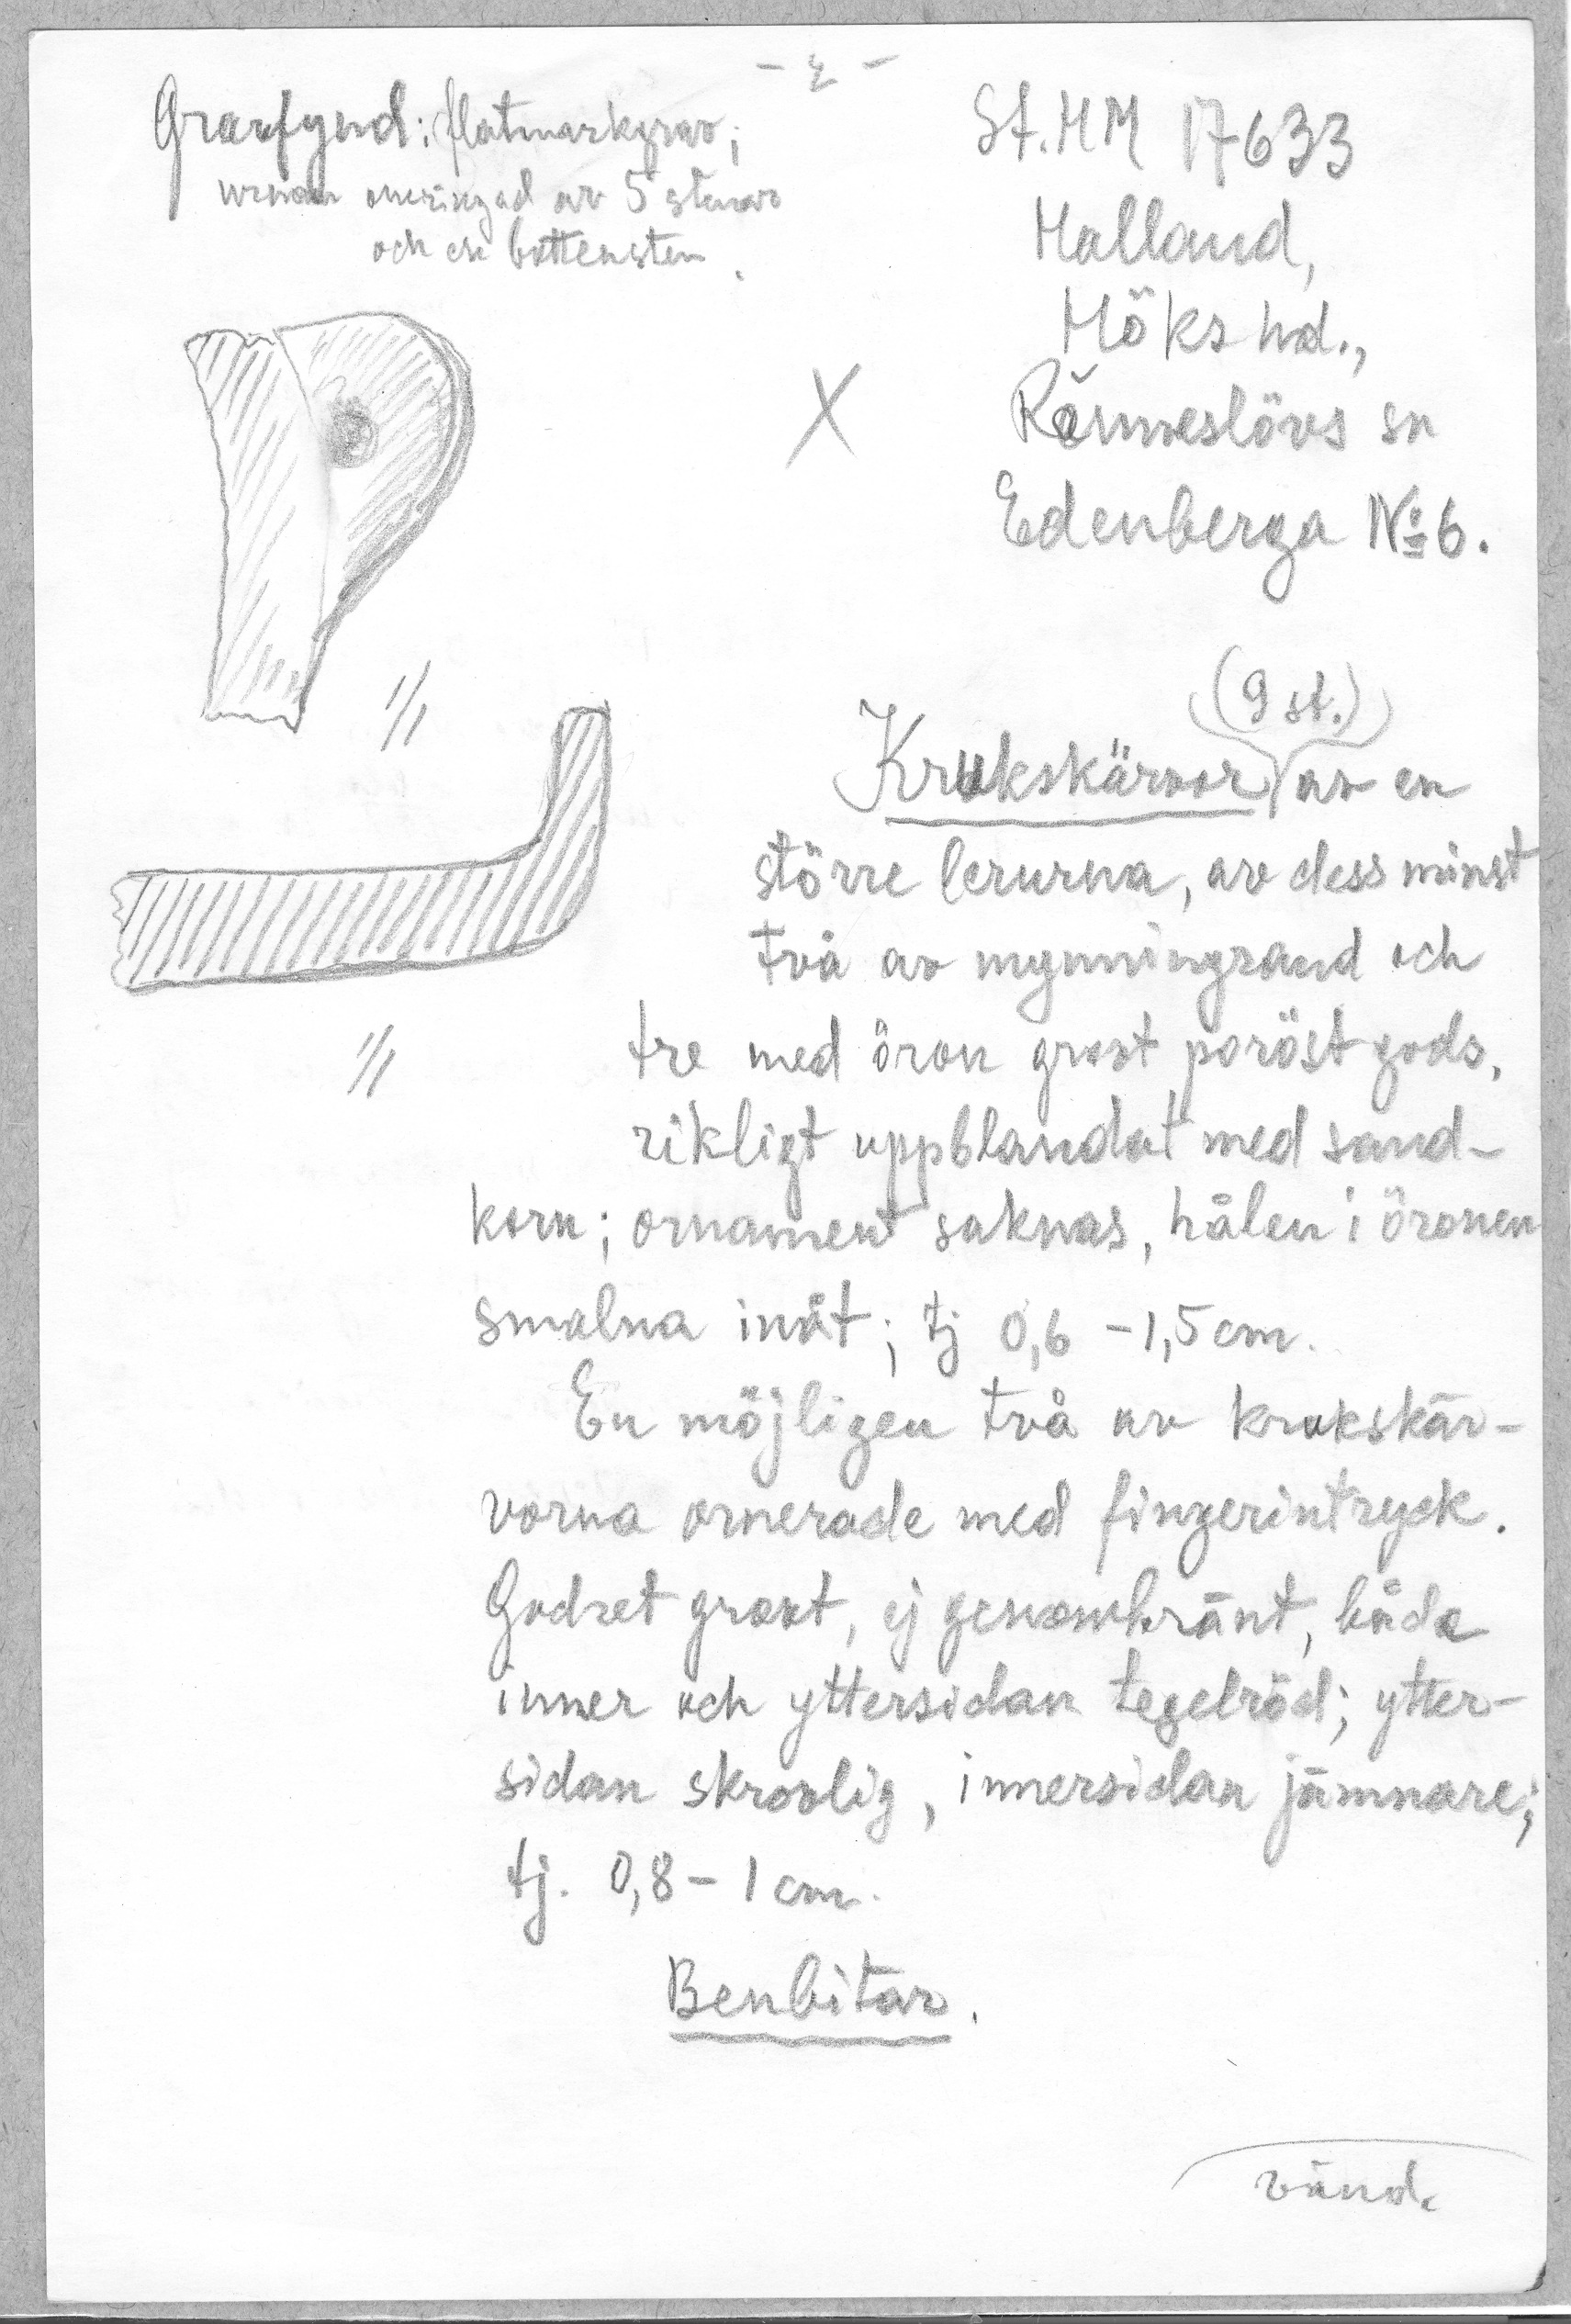 - 2 -
Gravfynd: flatmarkgrav;
urnan omringad av 5 stenar
och en bottensten.
St. HM 17633
Halland,
Höks hd.,
Ränneslövs sn
Edenberga № 6.
X
1/1
1/1
(9 st.)
Krukskärvor av en
större lerurna, av dess minst
två av mynningrand och
tre med öron grovt poröst gods,
rikligt uppblandat med sand-
korn; ornament saknas, hålen i öronen
smalna inåt; tj 0,6 - 1,5 cm.
En möjligen två av krukskär-
vorna ornerade med fingerintryck.
Godset grovt, ej genombränt, båda
inner och yttersidan tegelröd; ytter-
sidan skrovlig, innersidan jämnare;
tj. 0,8 - 1 cm.
Benbitar.
vänd.